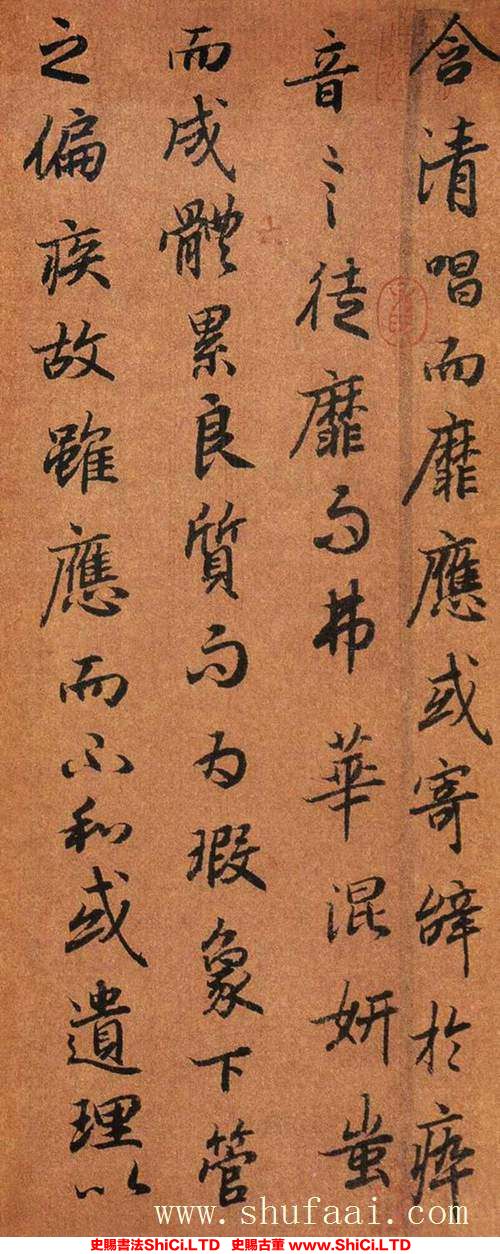 含清唱而靡應或寄辭於瘁
音言徒靡而弗華混妍蚩
而成體累良質而為瑕象下管
之偏疾故雖應而不和或遺理以
www.shufaai.com
史賜書法ShiCi.LTD 史賜古董 www.SHICI.LTD